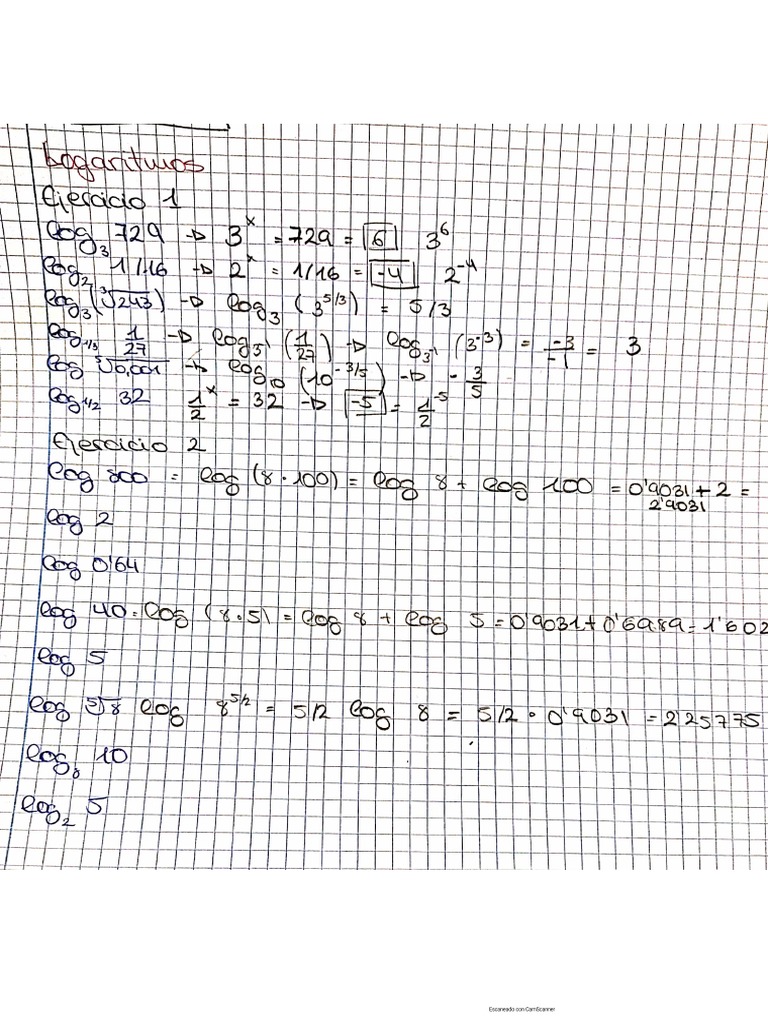 Logaritmos
Ejercicio 1
log₃ 729 → 3ˣ = 729 = 6 3⁶
log₂ 1/16 → 2ˣ = 1/16 = -4 2⁻⁴
log₃ (³√243) → log₃ (3^5/3) = 5/3
log₁/₃ 1/27 → log₃-¹ (1/27) → log₃-¹ (3⁻³) = -3/-1 = 3
log ⁵√0,001 → log₁₀ (10^-3/5) → -3/5
log₁/₂ 32 1/2ˣ = 32 → -5 = 1/2⁻⁵
Ejercicio 2
log 800 = log (8·100) = log 8 + log 100 = 0'9031 + 2 =
2'9031
log 2
log 0'64
log 40 = log (8·5) = log 8 + log 5 = 0'9031 + 0'6989 = 1'602
log 5
log ⁵√8 log 8^5/2 = 5/2 log 8 = 5/2 · 0'9031 = 2'25775
log₈ 10
log₂ 5
Escaneado con CamScanner